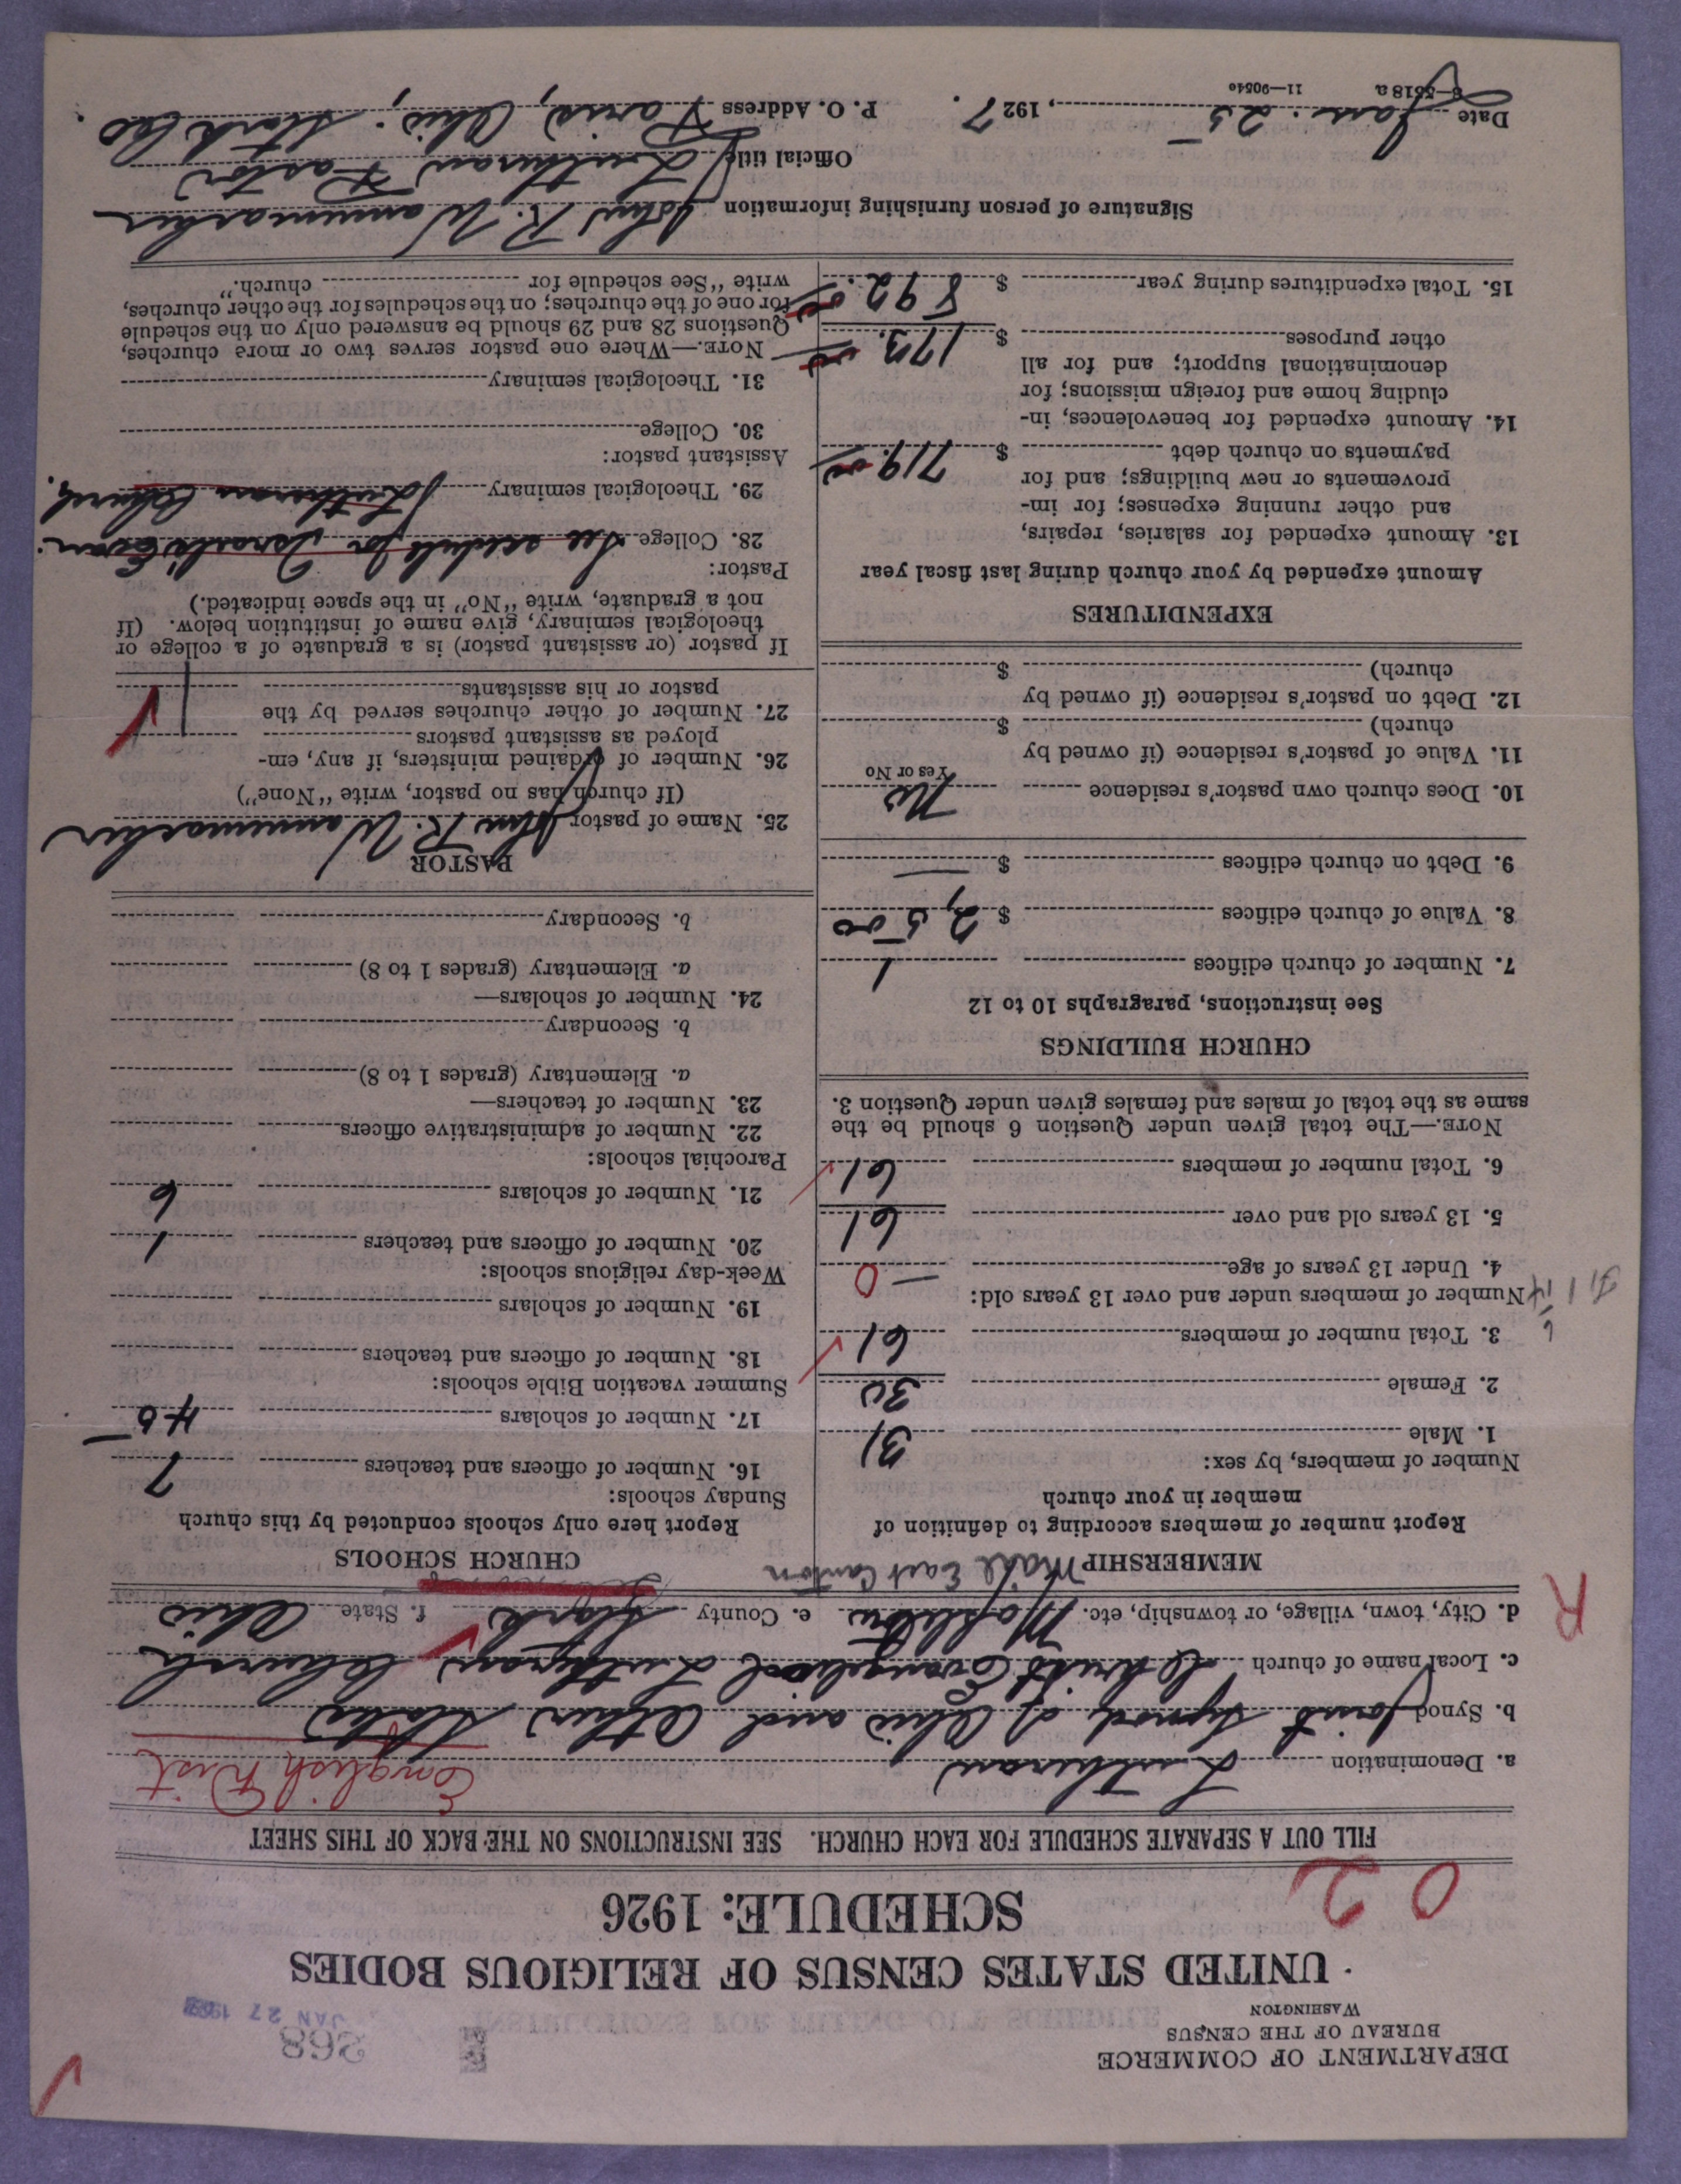 DEPARTMENT OF COMMERCE
BUREAU OF THE CENSUS
WASHINGTON
268
JAN 27
UNITED STATES CENSUS OF RELIGIOUS BODIES
SCHEDULE: 1926
0 2
FILL OUT A SEPARATE SCHEDULE FOR EACH CHURCH. SEE INSTRUCTIONS ON THE BACK OF THIS SHEET
a. Denomination Lutheran
English
b. Synod Joint Synod of Ohio and Other States
c. Local name of church Christ Evangelical Lutheran Church
R
d. City, town, village, or township, etc. e. County Stark f. State Ohio
MEMBERSHIP Mail East Canton
Report number of members according to definition of
member in your church
Number of members, by sex:
1. Male 31
2. Female 30
3. Total number of members 61
Number of members under and over 13 years old:
4. Under 13 years of age — 0
5. 13 years old and over 61
6. Total number of members 61
NOTE.—The total given under Question 6 should be the
same as the total of males and females given under Question 3.
CHURCH BUILDINGS
See instructions, paragraphs 10 to 12
7. Number of church edifices 1
8. Value of church edifices $ 2,500
9. Debt on church edifices $ —
10. Does church own pastor's residence No
Yes or No
11. Value of pastor's residence (if owned by
church) $
12. Debt on pastor's residence (if owned by
church) $
EXPENDITURES
Amount expended by your church during last fiscal year
13. Amount expended for salaries, repairs,
and other running expenses; for im-
provements or new buildings; and for
payments on church debt $ 719.00
14. Amount expended for benevolences, in-
cluding home and foreign missions; for
denominational support; and for all
other purposes $ 173.00
15. Total expenditures during year $ 892.00
CHURCH SCHOOLS
Report here only schools conducted by this church
Sunday schools:
16. Number of officers and teachers 7
17. Number of scholars 45
Summer vacation Bible schools:
18. Number of officers and teachers
19. Number of scholars
Week-day religious schools:
20. Number of officers and teachers 1
21. Number of scholars 6
Parochial schools:
22. Number of administrative officers
23. Number of teachers—
a. Elementary (grades 1 to 8)
b. Secondary
24. Number of scholars—
a. Elementary (grades 1 to 8)
b. Secondary
PASTOR
25. Name of pastor John R. Wannemacher
(If church has no pastor, write "None")
26. Number of ordained ministers, if any, em-
ployed as assistant pastors
27. Number of other churches served by the
pastor or his assistants 1
If pastor (or assistant pastor) is a graduate of a college or
theological seminary, give name of institution below. (If
not a graduate, write "No" in the space indicated.)
Pastor:
28. College See schedule for Israels Evan.
29. Theological seminary Lutheran Church.
Assistant pastor:
30. College
31. Theological seminary
NOTE.—Where one pastor serves two or more churches,
Questions 28 and 29 should be answered only on the schedule
for one of the churches; on the schedules for the other churches,
write "See schedule for church."
Signature of person furnishing information John R. Wannemacher
Official title Lutheran Pastor
Date Jan. 25, 1927. P. O. Address Paris, Ohio. Stark Co.
8—5518a 11—9054o